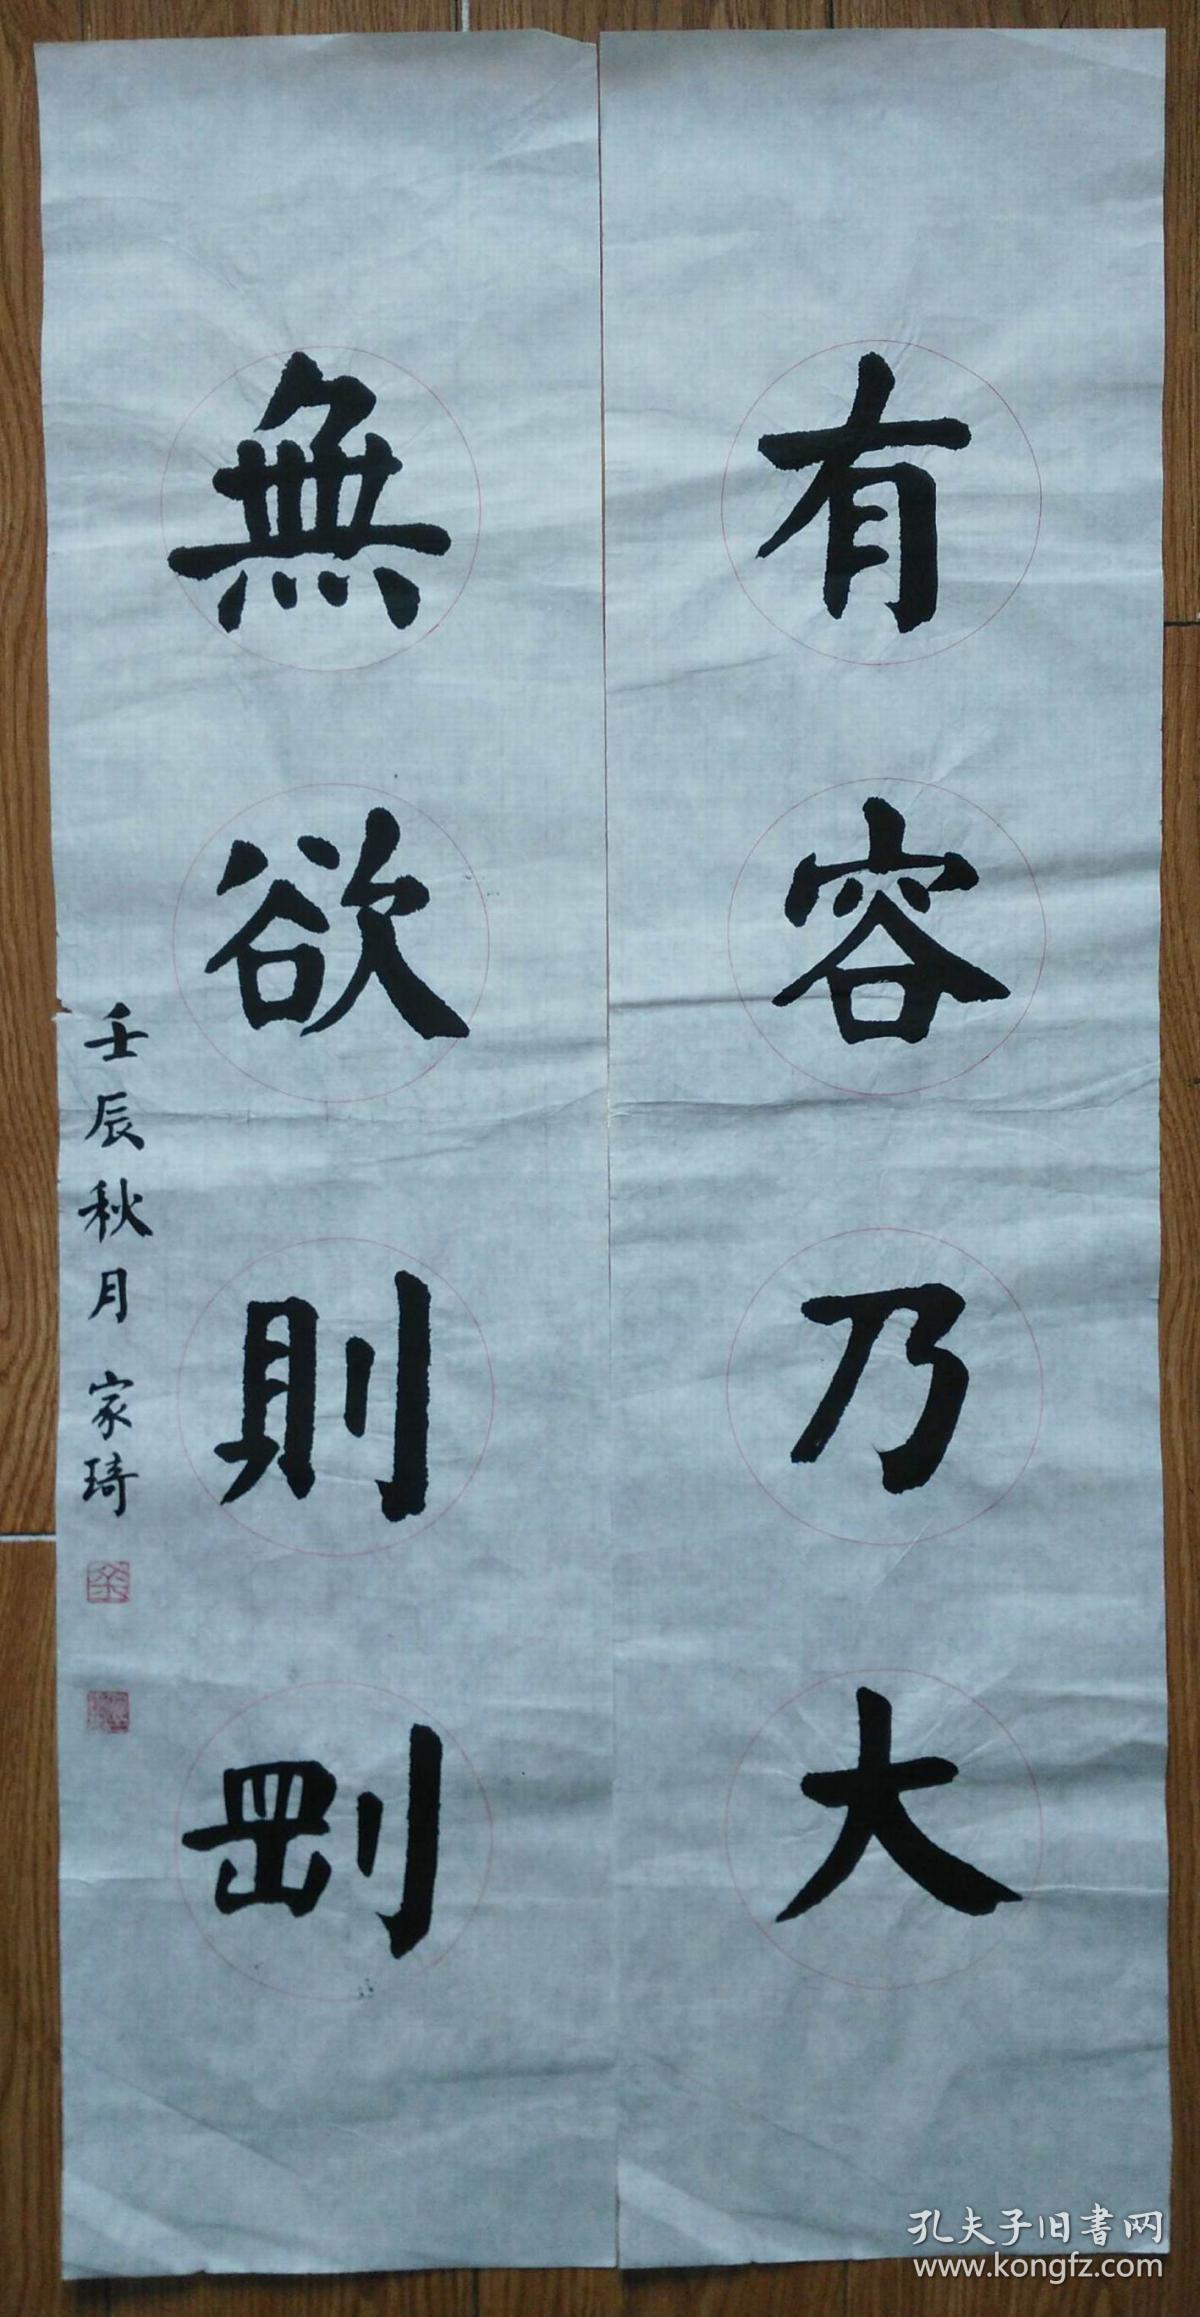 有容乃大
無欲則剛
壬辰秋月家琦
孔夫子旧書网
www.kongfz.com